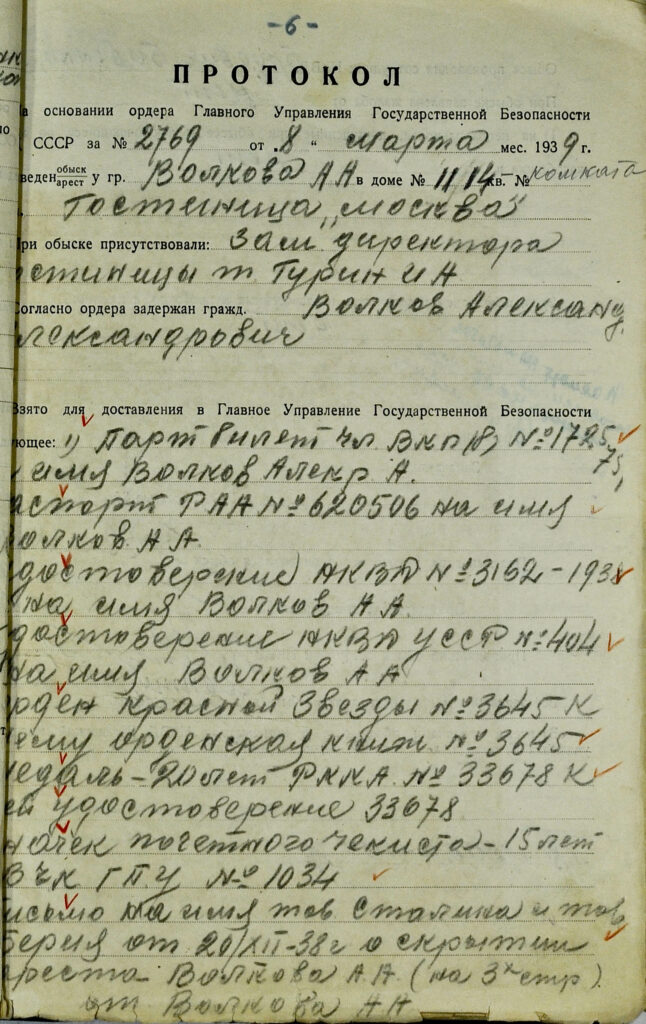 -6-
ПРОТОКОЛ
а основании ордера Главного Управления Государственной Безопасности
СССР за № 2769 от „8“ марта мес. 1939 г.
веден обыск арест у гр. Волкова АА в доме № 11/14 кв. № комната
Гостиница „Москва“
При обыске присутствовали: Зам директора
остиницы т. Гурин И А
Согласно ордера задержан гражд. Волков Александ
лександрович
Взято для доставления в Главное Управление Государственной Безопасности
ющее: 1) Парт билет чл. ВКП(б) № 1725
имя Волков Алекр А. 75,
аспорт РАА № 620506 на имя
олков А А.
достоверение НКВД № 3162-1938
на имя Волков А А.
достоверение НКВД УССР № 404
на имя Волков А А
рден красной Звезды № 3645 К
нему орденская книж № 3645
едаль-20 лет РККА. № 33678 К
ей удостоверение 33678
начек почетного чекиста-15 лет
ВЧК ГПУ № 1034
исьмо на имя тов Сталина и тов
Берия от 20/XII-38г о скрытии
ареста Волкова А А (на 3х стр)
от Волкова А А